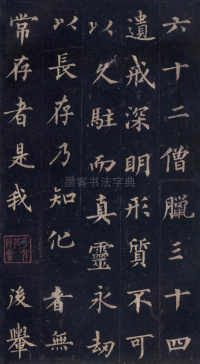 六十二僧臘三十四
遺戒深明形質不可
以久駐而真靈永劫
以長存乃知化者無
常存者是我 後學
墨客书法字典